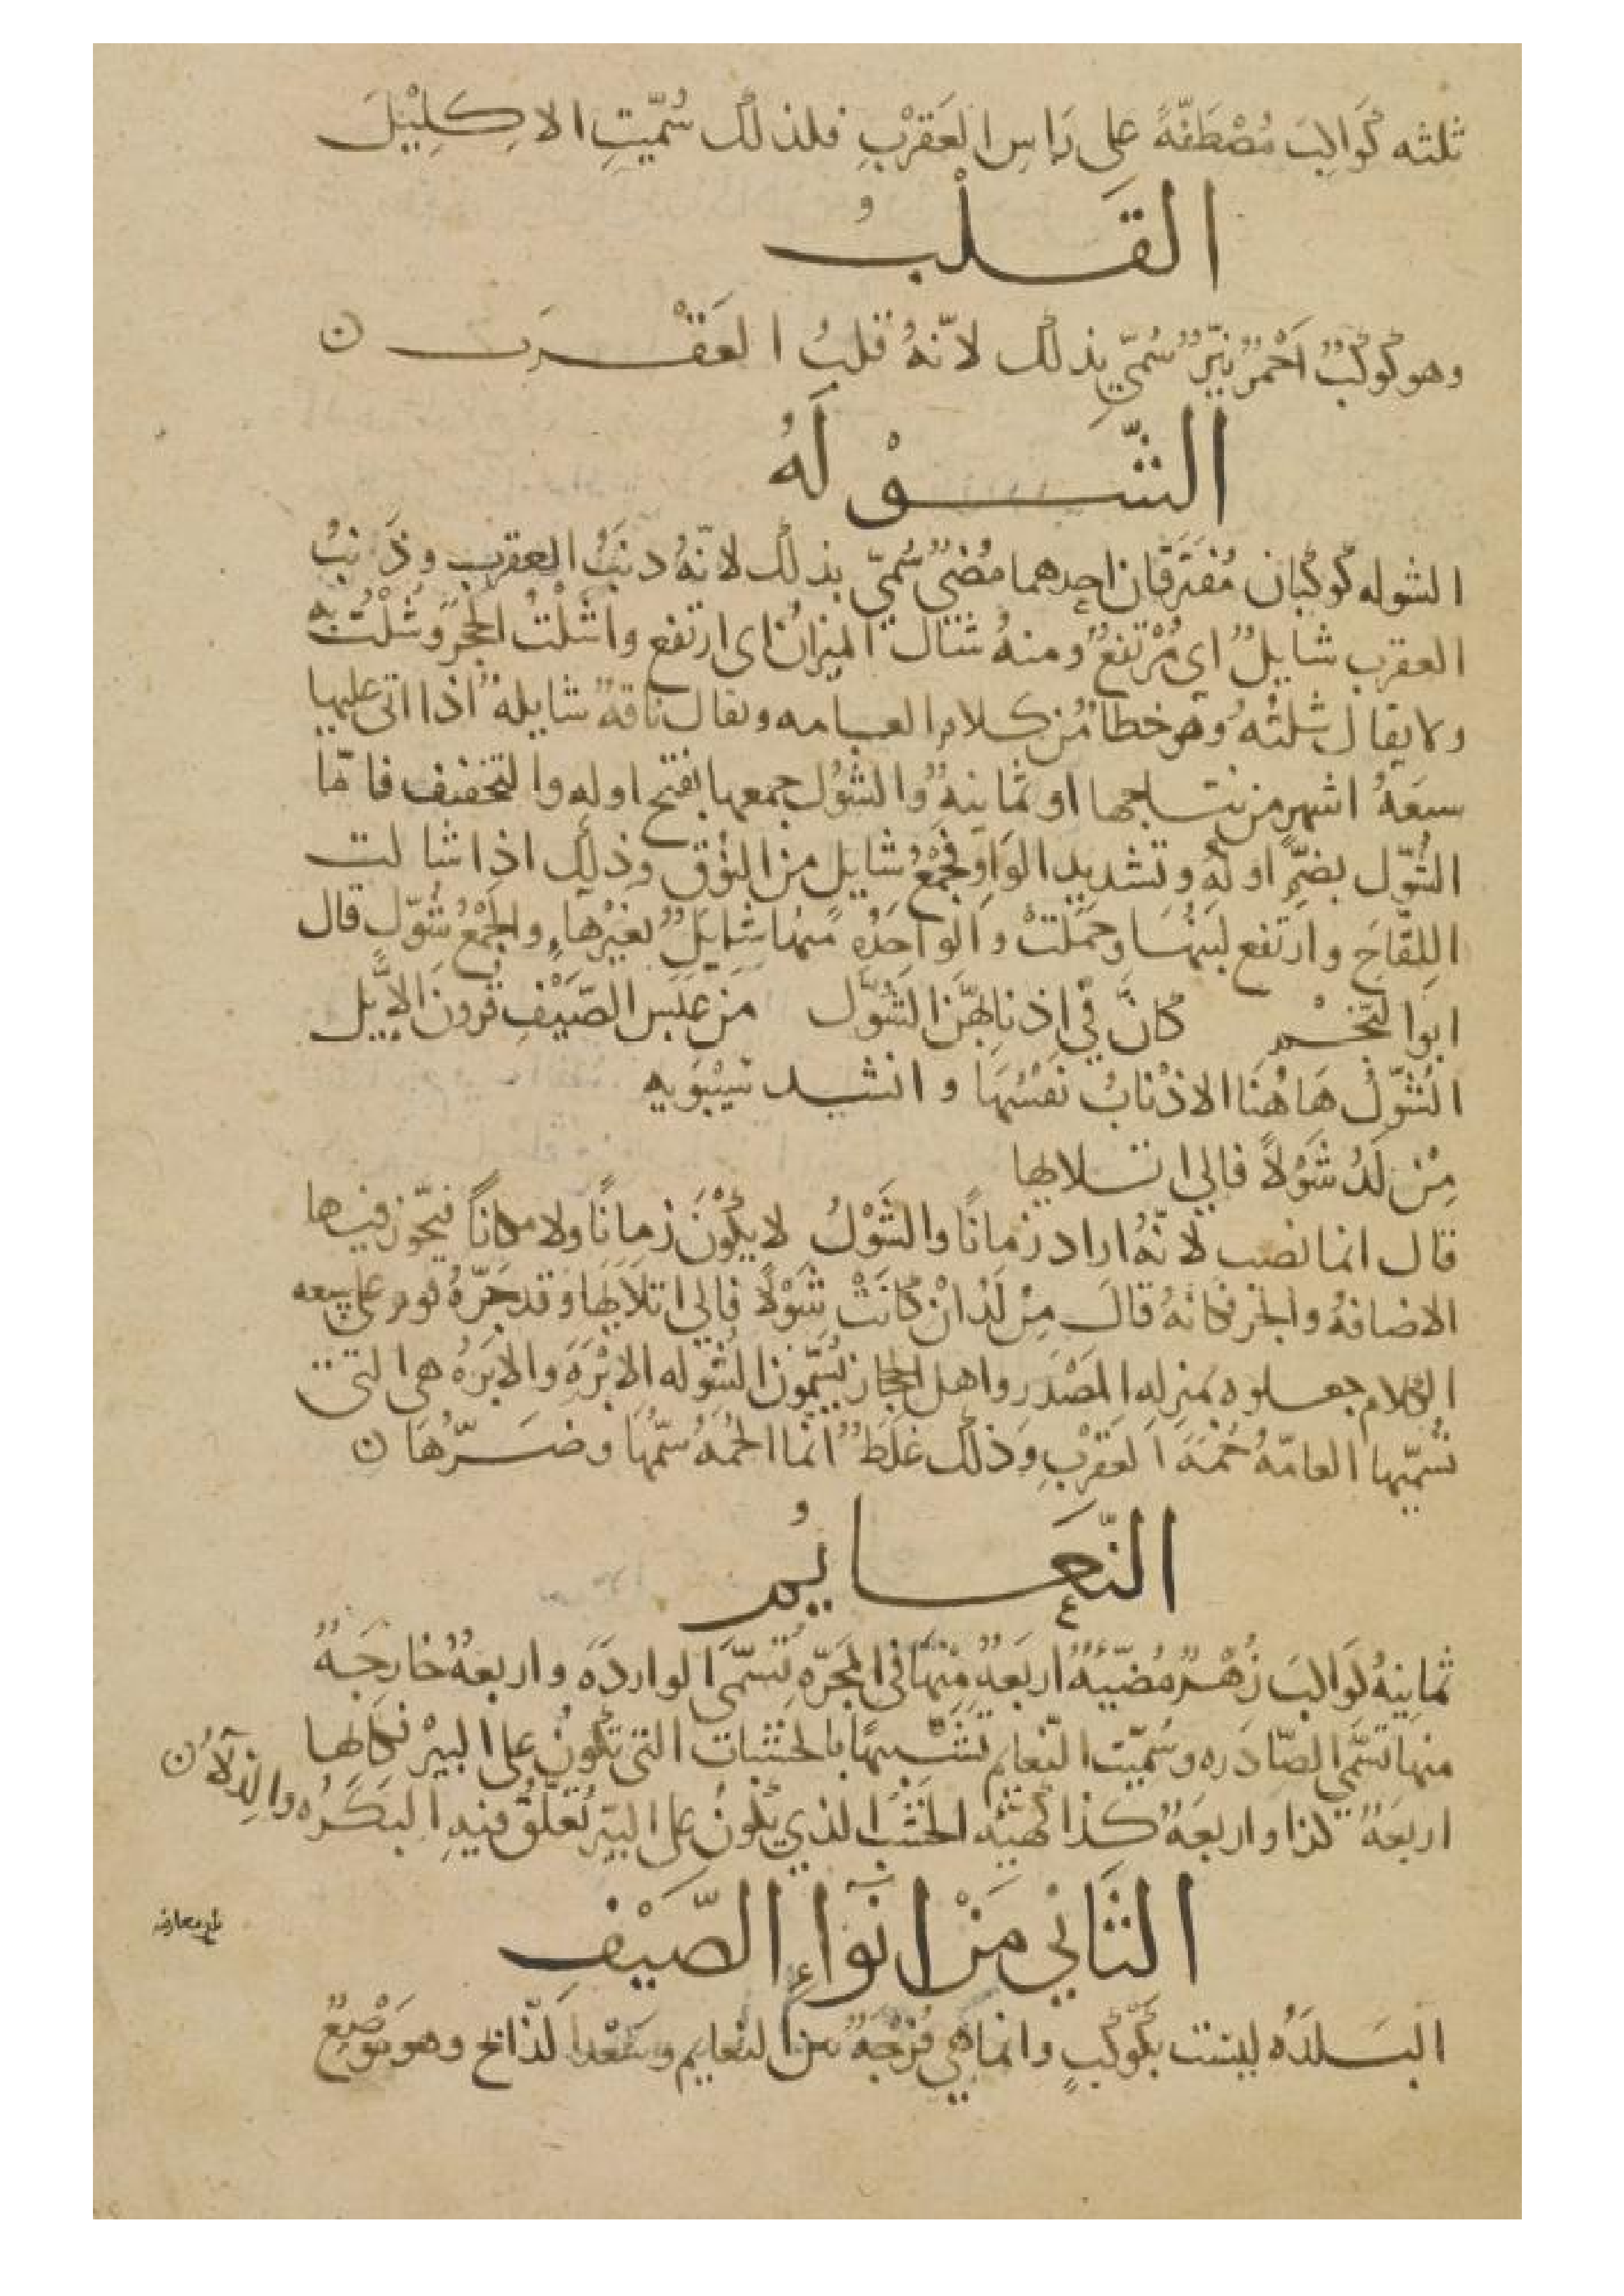 ثلثه كَوَاكِبَ مُصْطَفّةً على رَاسِ العَقرْبِ فلذلك سُمّيَتِ الاِكلِيْلَ
القَلْبُ
وهو كَوْكَبٌ اَحْمرُ نيّرٌ سُمّيَ بذلك لانّهُ قلبُ العَقْرَب ن
الشَّوْلَهُ
الشوله كوكبان مُفتَرَقَان احدهما مُضيٌ سُمّيَ بذلك لانّهُ ذنَبُ العقرب وذَنبُ
العقرب شايلٌ اي مُرْتفعٌ ومنهُ شال الميزانُ اى ارتفع واَشَلْتُ الحجَرَ وشُلْتُ به
ولا يقال شلتُهُ وهو خطأ من كلام العامه ويقال ناقةٌ شايلةٌ اذا اتى عليها
سبعَهُ اشهرٍ من نتاجها او ثمانيهٌ والشَوْل جمعها بفتح اوله والتخفيف فامّا
الشُوّل بضمِّ اولهِ وتشديد الوَاوِ فجَمْعُ شايل من النوْقِ وذلك اذا شالت
اللِقَاحَ وارتفع لبنهَا وحمَلتْ والواحدُه منها شايلٌ بغيْرهَاءٍ والجَمْعُ شُوّل قال
ابوا النجْم كانَّ في اذنابِهنَّ الشُوَّل من عَبَسِ الصَيْفِ قرونَ الايَّل
الشُوّلُ هَاهُنَا الاذْنابُ نفسُهَا وانشد سِيْبَوَيهِ
مِنْ لَدُ شَوْلاً فالي اتلايها
قال انما نصب لانّهُ اراد زمانًا والشَوْلُ لا يَكُوْنَ زمانًا ولا مكانًا فيَجُوز فيها
الاضافهُ والجر فكانهُ قالَ مِنْ لَدُ انْ كانَتْ شَوْلاً فالي اتلايها وقد جَرّهُ قوم على سعه
الكلام جعلوه بمنزلهِ المصْدَر واهل الحجاز يُسَمّونَ الشوله الاِبْرَهَ والابرَهُ هى التى
تُسَمّيها العامّهُ حُمَهَ العَقرْبِ وذلك غَلَطٌ انّما الحُمَهُ سَمُّهَا وضَرُّهَا ن
النَّعَايمُ
ثمانيهُ كوَاكبَ زُهْرٌ مُضيّهٌ اربَعَةٌ مِنهَا في المجَرّهِ تُسَمّى الوارِدَه واربعهٌ خارجَهٌ
منها تسَمّى الصّادَره وسُمّيَت النّعايم تشبيهًا بالخشبات التى تكُونُ على البيْر فكانها
اربَعهٌ كذا واربعَهٌ كذا كهيْئه الخشَب الذي يَكُونُ على البيْر تُعَلَّقُ فيهِ البَكَرَه والدِلآءُ ن
الثَّاني مَنْ انوَاءِ الصَّيْف
البَلدَهُ ليست بكَوْكبٍ وانما هي فُرْجَهٌ بين النعايم وسَعْد الذّابح وهو مَوْضِعٌ
بلغ معارضه